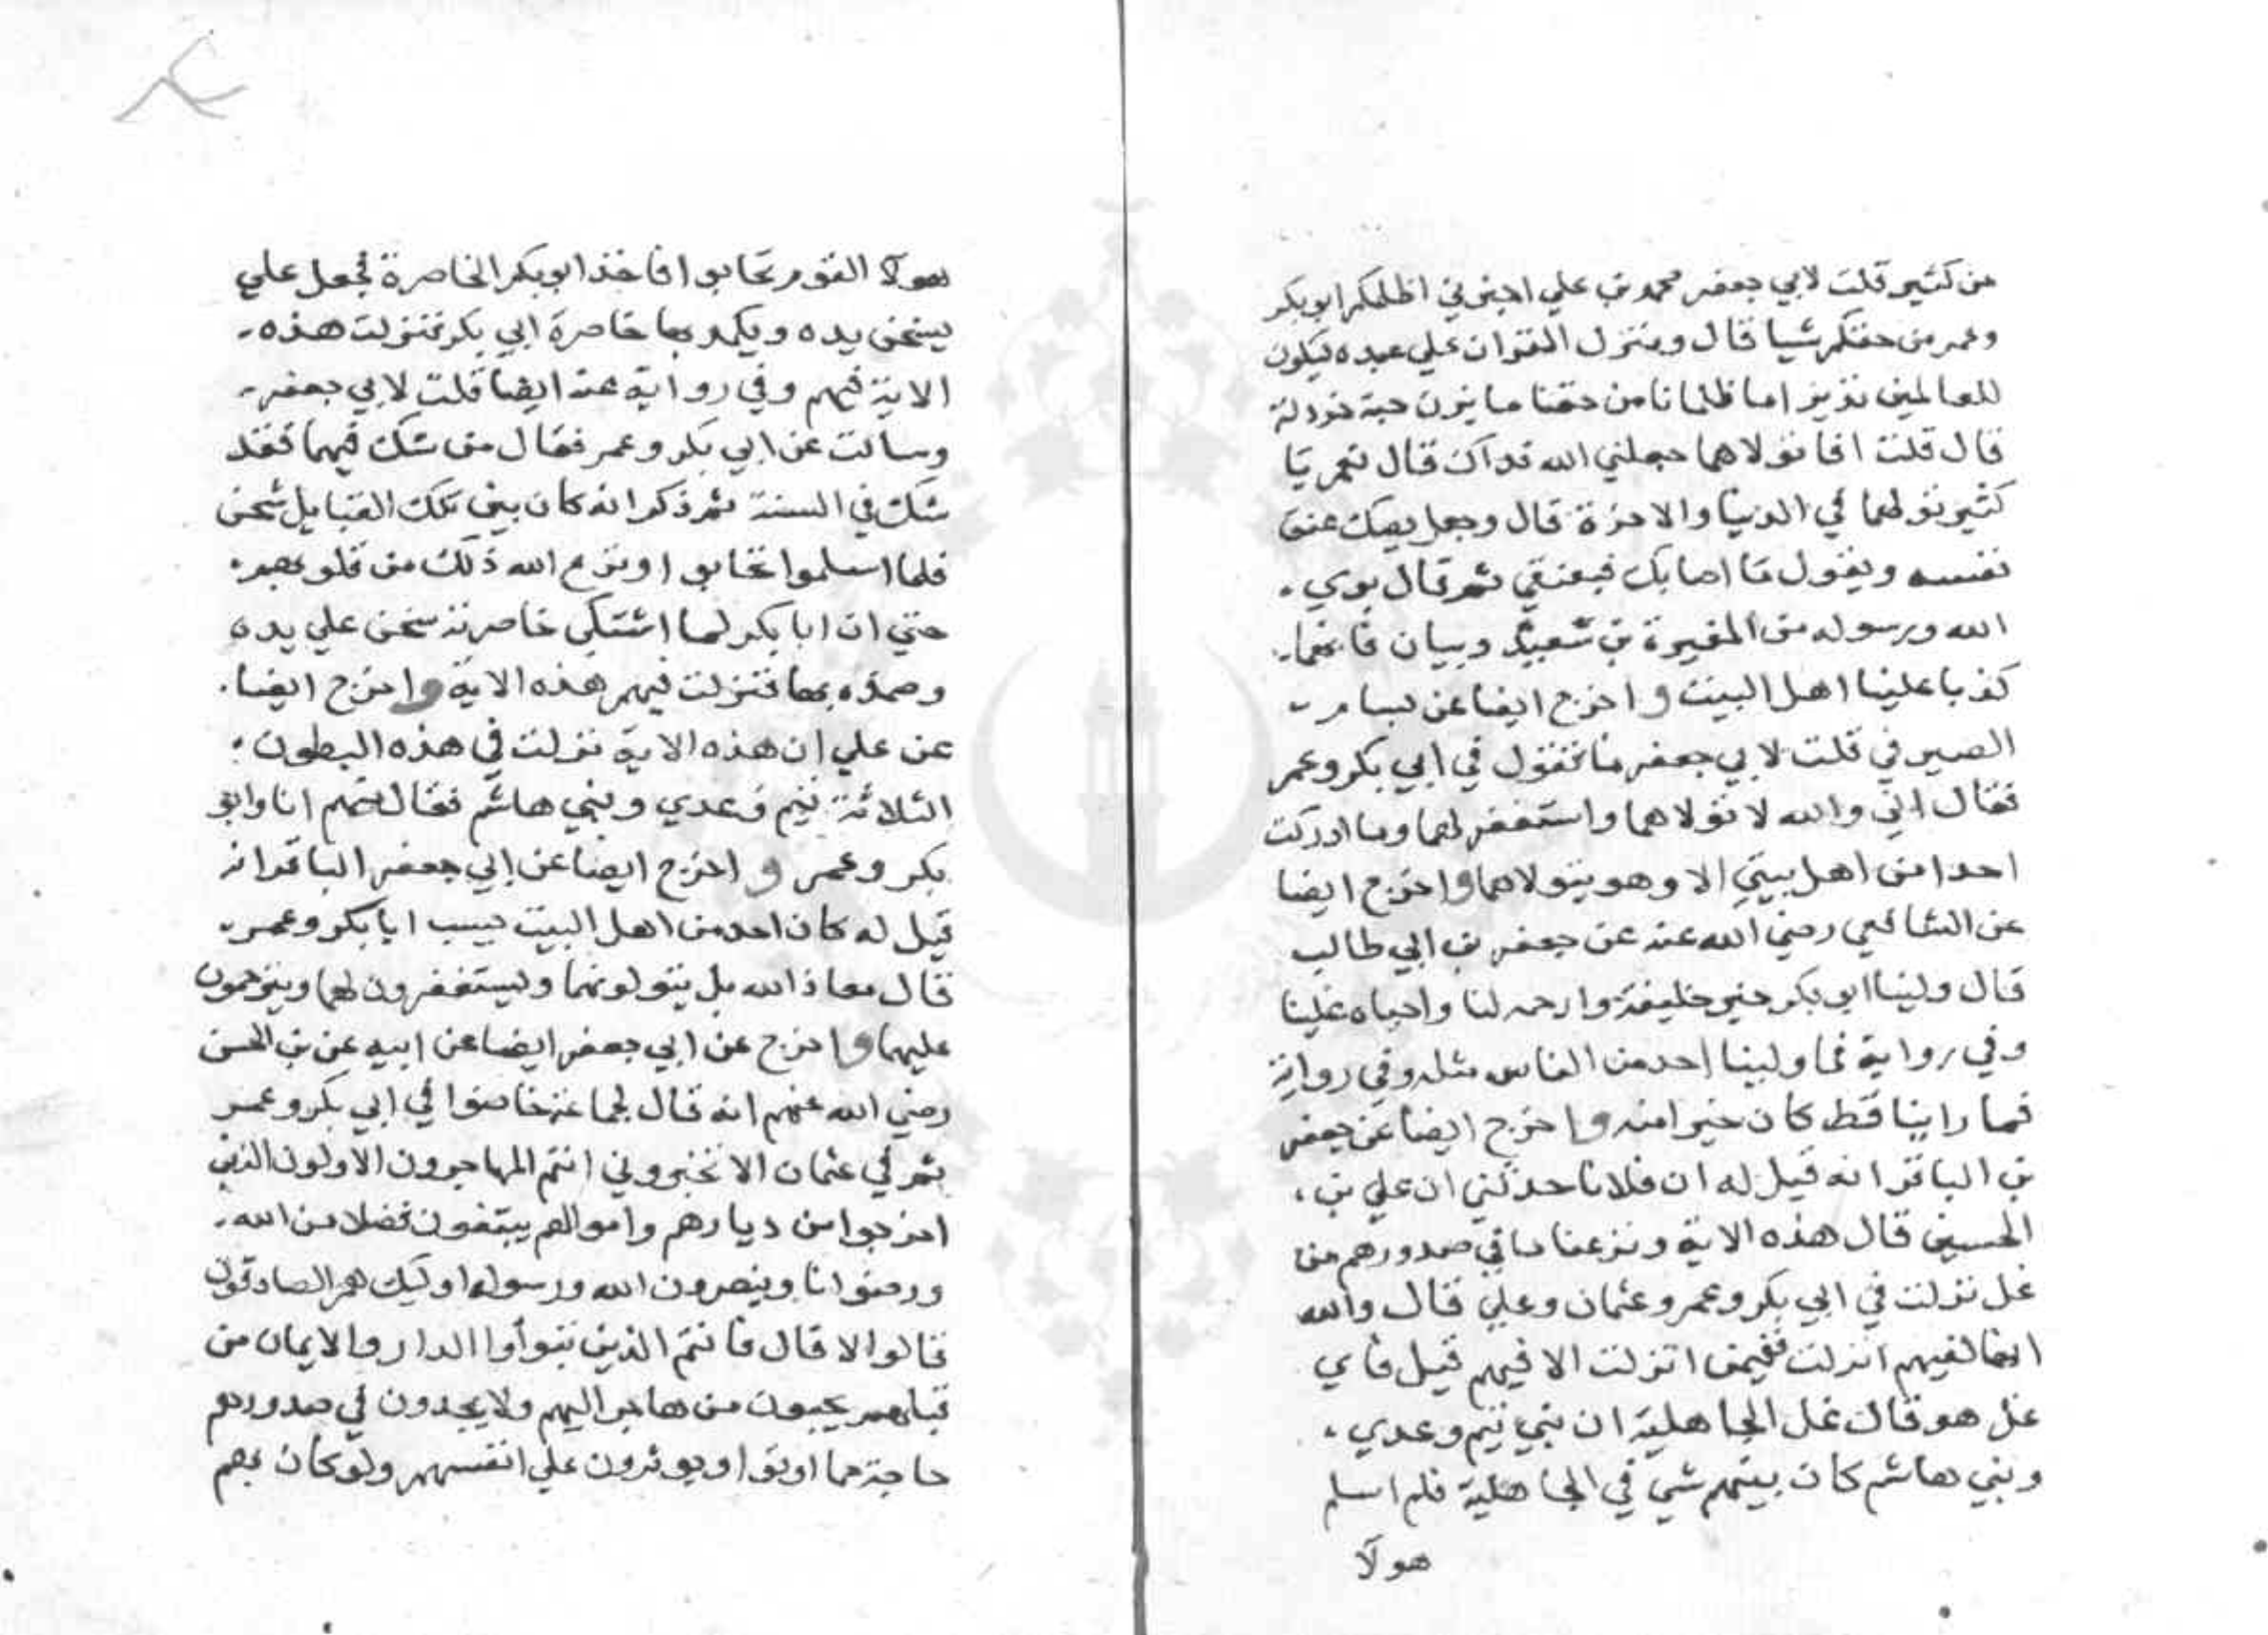 من كثير قلت لابي جعفر محمد بن علي اخبرني اظلمكم ابو بكر
وعمر من حقكم شيا قال ومنزل القران علي عبده ليكون
للعالمين نذيرا ما ظلمانا من حقنا ما يزن حبة خردلة
قال قلت افا تولاهما جعلني الله فداك قال نعم يا
كثير تولهما في الدنيا والاخرة قال وجعل يصك عنق
نفسه ويقول ما اصابك فبعنقي ثم قال بري
الله ورسوله من المغيرة بن شعبة وبيان فانهما
كذبا علينا اهل البيت واخرج ايضا عن بسام
الصيرفي قلت لابي جعفر ما تقول في ابي بكر وعمر
فقال اني والله لا تولاهما واستغفر لهما وما ادركت
احدا من اهل بيتي الا وهو يتولاهما واخرج ايضا
عن الشافعي رضي الله عنه عن جعفر بن ابي طالب
قال ولينا ابو بكر خير خليفة وارحمه لنا واحناه علينا
وفي رواية فما ولينا احد من الناس مثله وفي رواية
فما راينا قط كان خيرا منه واخرج ايضا عن جعفر
بن الباقر انه قيل له ان فلانا حدثني ان علي بن
الحسين قال هذه الاية ونزعنا ما في صدورهم من
غل نزلت في ابي بكر وعمر وعثمان وعلي قال والله
انها لفيهم انزلت ففيمن انزلت الا فيهم قيل فاي
غل هو قال غل الجاهلية ان بني تيم وعدي
وبني هاشم كان بينهم شي في الجاهلية فلم اسلم
هولا
هولا القوم تحابوا فاخذ ابو بكر الخاصرة فجعل علي
يسخن يده ويكمد بها خاصرة ابي بكر فنزلت هذه
الاية فيهم وفي رواية عنه ايضا قلت لابي جعفر
وسالت عن ابي بكر وعمر فقال من شك فيهما فقد
شك في السنة ثم ذكر انه كان بين تلك القبايل شحن
فلما اسلموا تحابوا ونزع الله ذلك من قلوبهم
حتي ان ابا بكر لما اشتكي خاصرته سخن علي يده
وضمده بها فنزلت فيهم هذه الاية واخرج ايضا
عن علي ان هذه الاية نزلت في هذه البطون
الثلاثة تيم وعدي وبني هاشم فقال منهم انا وابو
بكر وعمر واخرج ايضا عن ابي جعفر الباقر انه
قيل له كان احد من اهل البيت يسب ابا بكر وعمر
قال معاذ الله بل يتولونهما ويستغفرون لهما ويترحمون
عليهما واخرج عن ابي جعفر ايضا عن ابيه عن بن الحسن
رضي الله عنهم انه قال لجماعة خاضوا في ابي بكر وعمر
ثم في عثمان الا تخبروني انتم المهاجرون الاولون الذين
اخرجوا من ديارهم واموالهم يبتغون فضلا من الله
ورضوانا وينصرون الله ورسوله اوليك هم الصادقون
قالوا لا قال فانتم الذين تبوأوا الدار والايمان من
قبلهم يحبون من هاجر اليهم ولا يجدون في صدورهم
حاجة مما اوتوا ويوثرون علي انفسهم ولو كان بهم